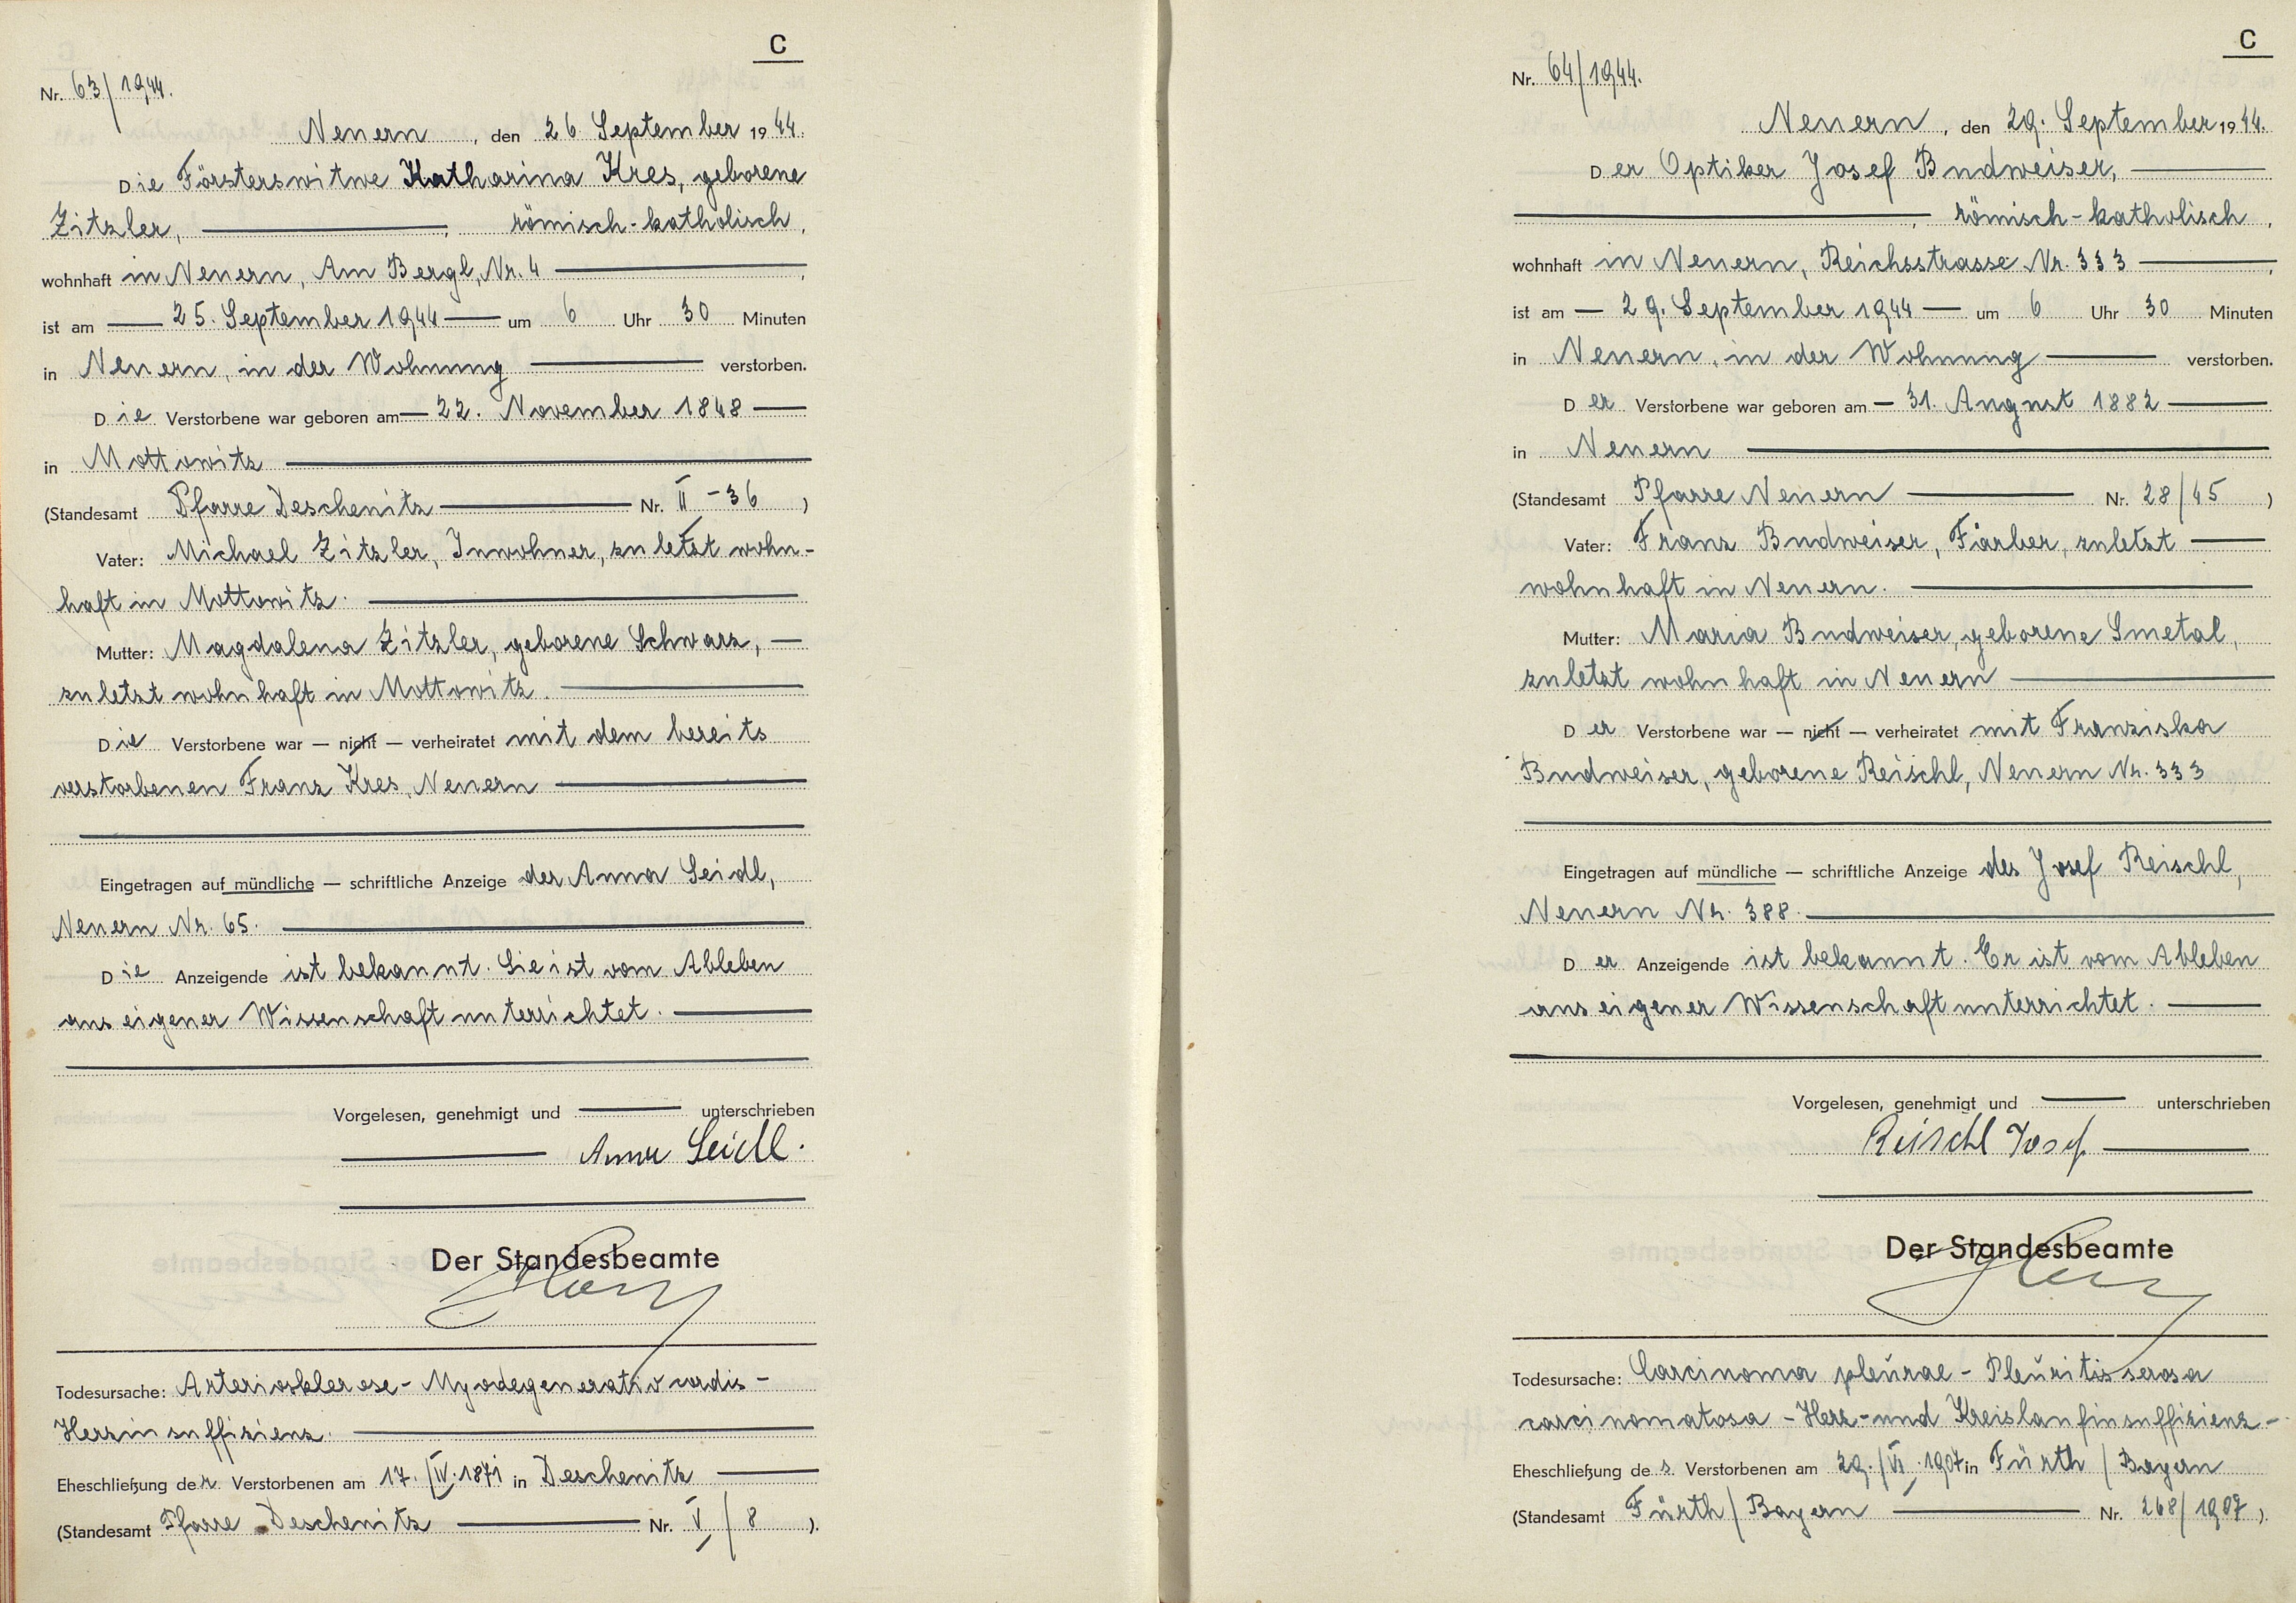 C
Nr. 63/1944.
Neuern, den 26. September 1944.
Die Försterswitwe Katharina Kres, geborene
Zitzler, römisch-katholisch,
wohnhaft in Neuern, Am Bergl, Nr. 4
ist am 25. September 1944 um 6 Uhr 30 Minuten
in Neuern, in der Wohnung verstorben.
Die Verstorbene war geboren am 22. November 1848
in Mottowitz
(Standesamt Pfarre Deschenitz Nr. II - 36)
Vater: Michael Zitzler, Inwohner, zuletzt wohn-
haft in Mottowitz.
Mutter: Magdalena Zitzler, geborene Schwarz,
zuletzt wohnhaft in Mottowitz.
Die Verstorbene war — nicht — verheiratet mit dem bereits
verstorbenen Franz Kres, Neuern
Eingetragen auf mündliche — schriftliche Anzeige der Anna Seidl,
Neuern Nr. 65.
Die Anzeigende ist bekannt. Sie ist vom Ableben
aus eigener Wissenschaft unterrichtet.
Vorgelesen, genehmigt und unterschrieben
Anna Seidl.
Der Standesbeamte
Todesursache: Arteriosklerose - Myodegeneratio cordis -
Herzinsuffizienz.
Eheschließung der Verstorbenen am 17./IV.1871 in Deschenitz
(Standesamt Pfarre Deschenitz Nr. V/8).
C
Nr. 64/1944.
Neuern, den 29. September 1944.
Der Optiker Josef Budweiser,
römisch-katholisch,
wohnhaft in Neuern, Reichsstrasse Nr. 333
ist am 29. September 1944 um 6 Uhr 30 Minuten
in Neuern, in der Wohnung verstorben.
Der Verstorbene war geboren am 31. August 1882
in Neuern
(Standesamt Pfarre Neuern Nr. 28/45)
Vater: Franz Budweiser, Färber, zuletzt
wohnhaft in Neuern.
Mutter: Maria Budweiser, geborene Smetal,
zuletzt wohnhaft in Neuern
Der Verstorbene war — nicht — verheiratet mit Franziska
Budweiser, geborene Reischl, Neuern Nr. 333
Eingetragen auf mündliche — schriftliche Anzeige des Josef Reischl,
Neuern Nr. 388.
Der Anzeigende ist bekannt. Er ist vom Ableben
aus eigener Wissenschaft unterrichtet.
Vorgelesen, genehmigt und unterschrieben
Reischl Josef
Der Standesbeamte
Todesursache: Carcinoma pleurae - Pleuritis serosa
carcinomatosa - Herz- und Kreislaufinsuffizienz -
Eheschließung des Verstorbenen am 29./VI.1907 in Fürth / Bayern
(Standesamt Fürth / Bayern Nr. 268/1907).